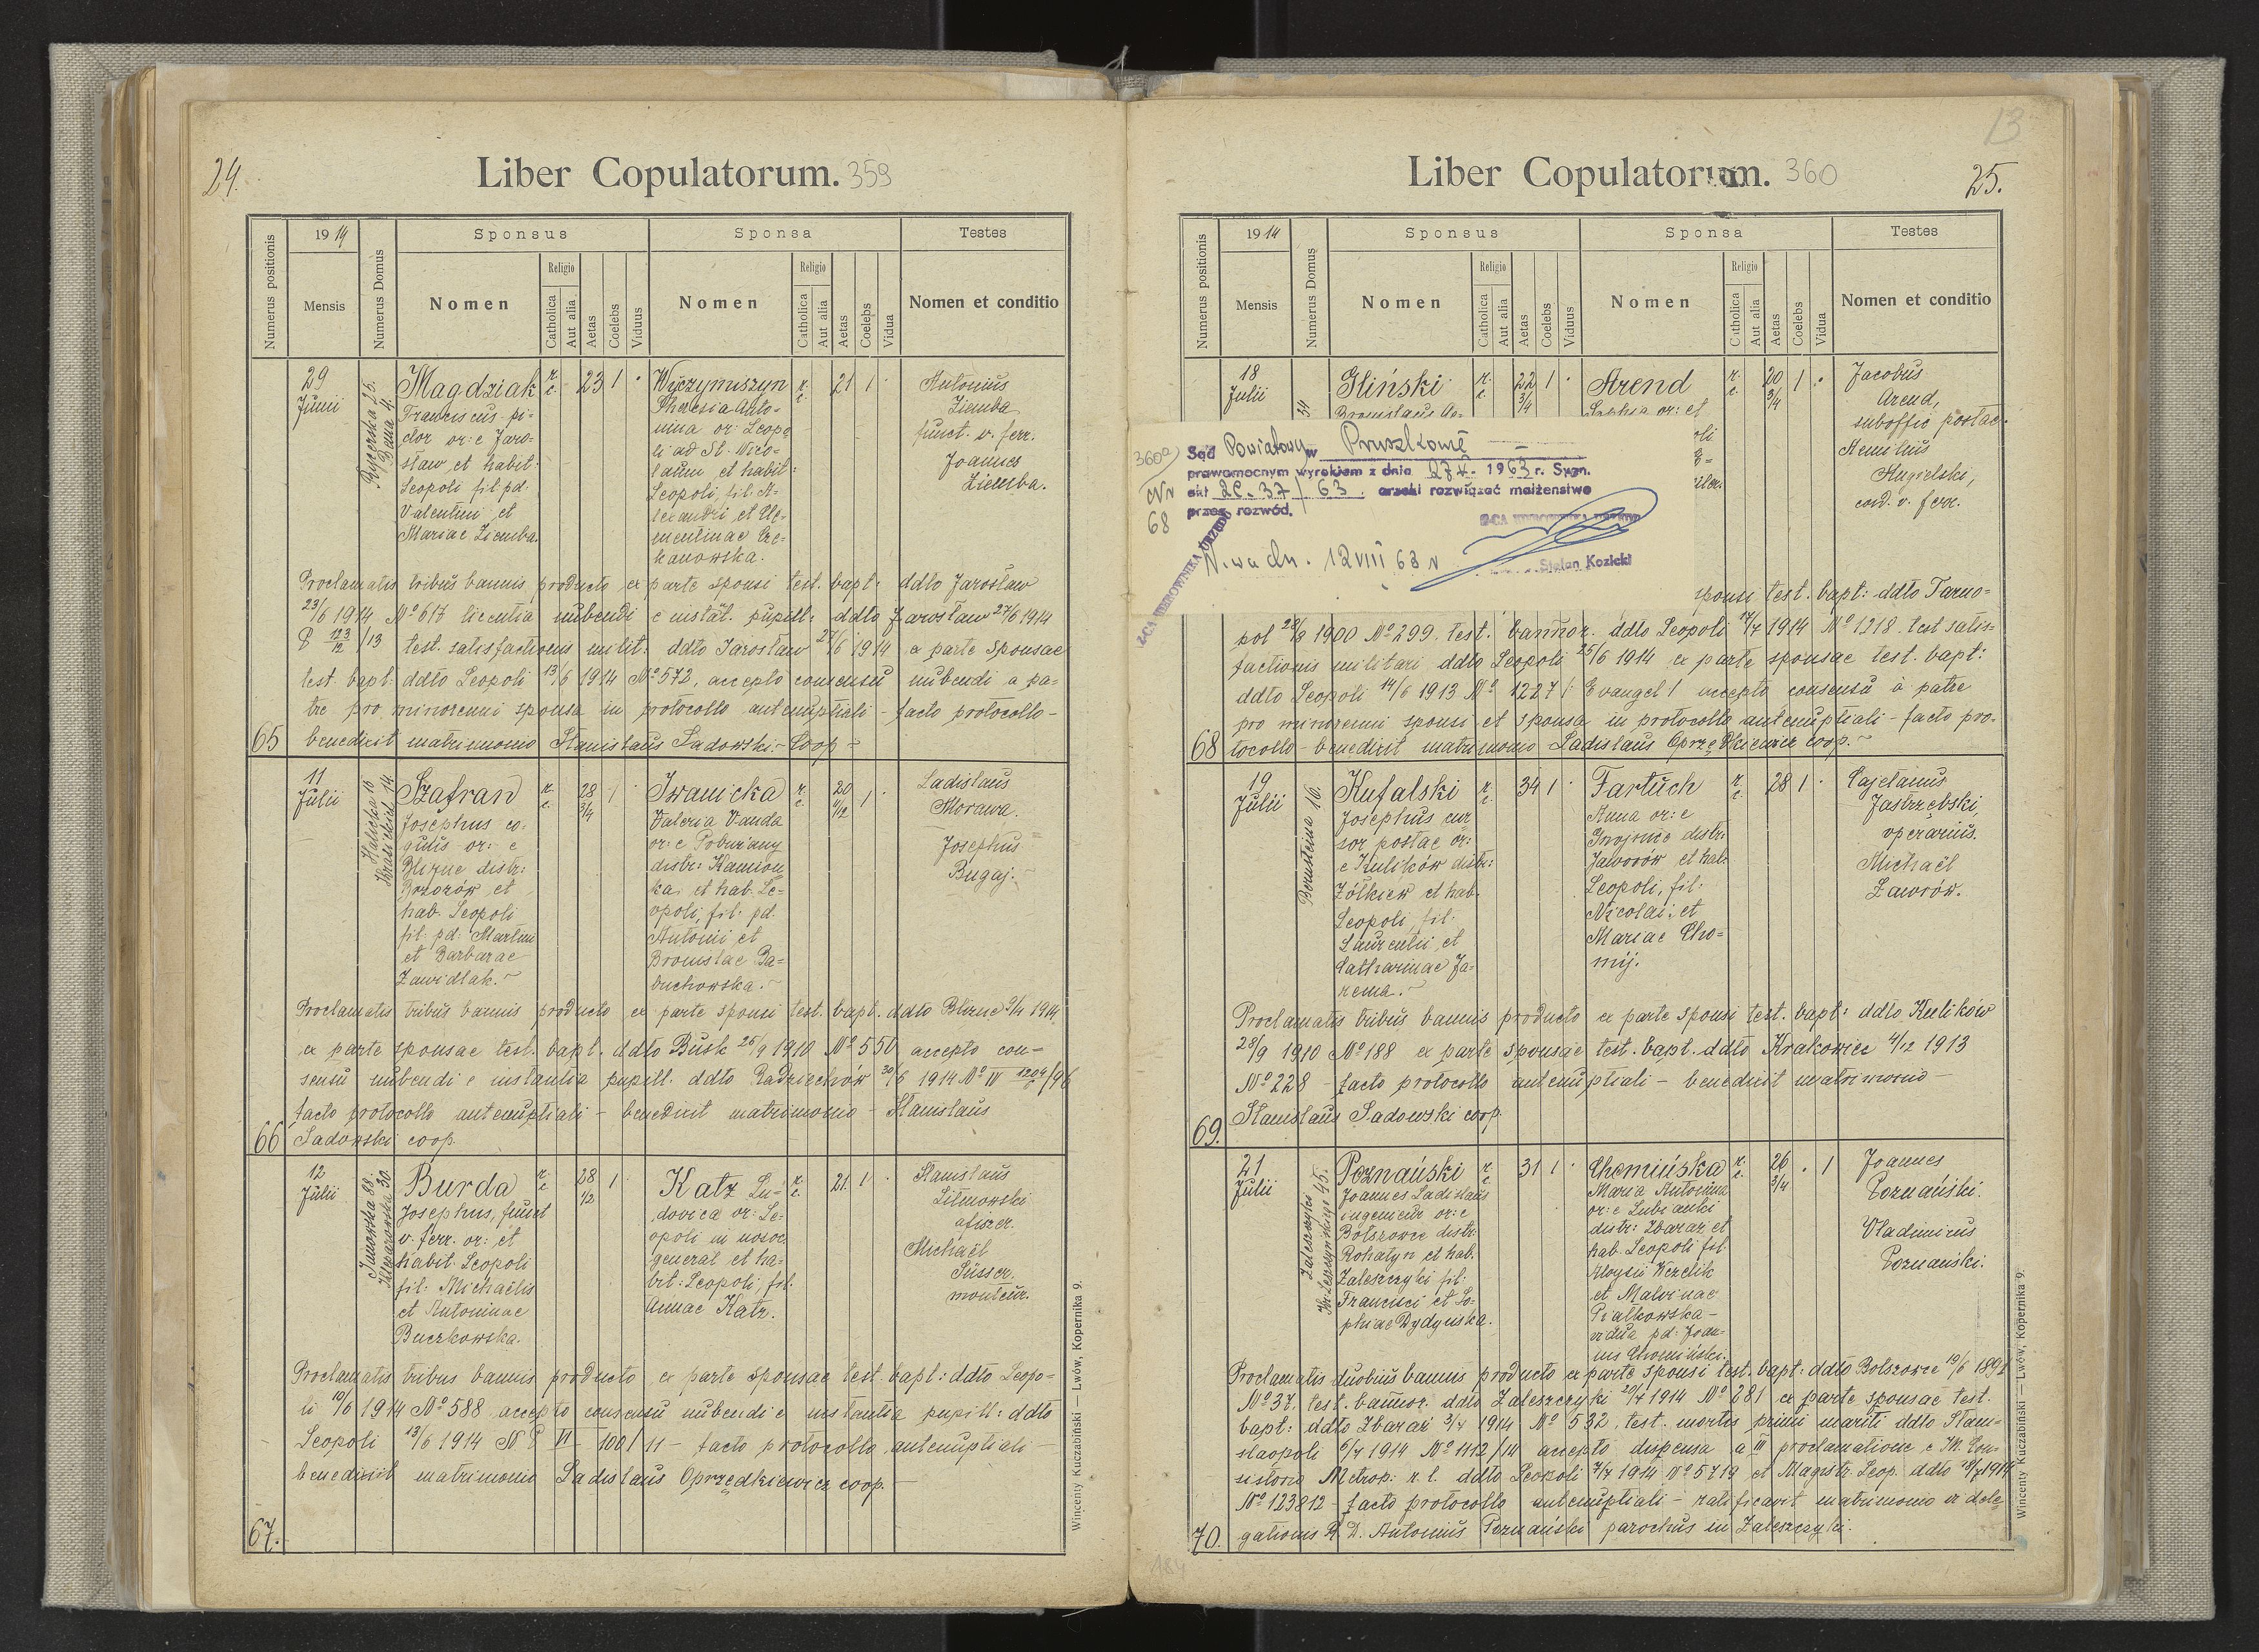 24.
Liber Copulatorum. 359
Numerus positionis
1914
Mensis
Numerus Domus
Sponsus
Nomen
Religio
Catholica
Aut alia
Aetas
Coelebs
Viduus
Sponsa
Nomen
Religio
Catholica
Aut alia
Aetas
Coelebs
Vidua
Testes
Nomen et conditio
29
Junii
Rycerska 25.
Bema 4.
Magdziak
Franciscus pi-
ctor or: e Jaro-
sław et habit:
Leopoli fil: pd.
Valentini et
Mariae Ziemba.
r. c.
23 1
Theresia Anto-
nina or: Leopo
li ad St. Nico-
laum et habit:
Leopoli, fil: A-
lexandri et Cle-
mentinae
r. c.
21 1
Antonius
Ziemba
funct. v. ferr.
Joannes
Ziemba.
Proclamatis tribus bannis producto ex parte sponsi test. bapt: ddto Jarosław
23/6 1914 No 617 licentia nubendi e instat. pupill: ddto Jarosław 27/6 1914
P 123/12 /13 test. satisfactionis milit: ddto Jarosław 27/6 1914 ex parte sponsae
test. bapt. ddto Leopoli 13/6 1914 No 572, accepto consensu nubendi a pa=
tre pro minorenni sponsa in protocollo antenuptiali – facto protocollo –
65 benedixit matrimonio Stanislaus Sadowski – Coop –
11
Julii
Halicka 15
Krasickich 14.
Szafran
Josephus co-
quus or: e
Blizne distr:
Brzozów et
hab. Leopoli
fil: pd: Martini
et Barbarae
Zawidlak. ~
r. c.
28 3/4 1
Iwanicka
Valeria Vanda
or: e Pobużany
distr: Kamion
ka et hab. Le-
opoli, fil: pd.
Antonii et
Bronislae Ba-
r. c.
20 11/12 1
Ladislaus
Morawa.
Josephus
Bugaj.
Proclamatis tribus bannis producto ex parte sponsi test. bapt. ddto Blizne 1914.
ex parte sponsae test. bapt. ddto Busk 26/9 1910 No 550 accepto con-
sensu nubendi e instantia pupill. ddto Radziechów 30/6 1914 No IV 1204/6 /96
facto protocollo antenuptiali – benedixit matrimonio – Stanislaus
66 Sadowski coop.
12
Julii
Janowska 88.
Kleparowska 30.
Burda
Josephus, funct
v. ferr. or: et
habit. Leopoli
fil: Michaelis
et Antoninae
Buczkowska.
r. c.
28 1/2 1
Katz Lu-
dovica or: Le-
opoli in nosoc.
general et ha-
bit: Leopoli, fil:
Annae Katz.
r. c.
21. 1
Stanislaus
Litwowski
afiszer.
Michaël
Süsser.
monteur.
Proclamatis tribus bannis producto ex parte sponsae test. bapt: ddto Leopo-
li 19/6 1914 No 588 accepto consensu nubendi e instantia pupill: ddto
Leopoli 13/6 1914 No P VI – 100/11 – facto protocollo antenuptiali –
benedixit matrimonio Ladislaus Oprzędkiewicz coop. –
67.
Wincenty Kuczabiński — Lwów, Kopernika 9.
13
25.
Liber Copulatorum. 360
Numerus positionis
1914
Mensis
Numerus Domus
Sponsus
Nomen
Religio
Catholica
Aut alia
Aetas
Coelebs
Viduus
Sponsa
Nomen
Religio
Catholica
Aut alia
Aetas
Coelebs
Vidua
Testes
Nomen et conditio
18
Julii
34
Gliński
Bronislaus
r. c.
22 3/4 1
Arend
Sophia or: et
r. c.
20 3/4 1
Jacobus
Arend,
suboffic postae.
Aemilius
Angielski,
cond. v. ferr.
360a
Nr
68
Sąd Powiatowy w Pruszkowie
prawomocnym wyrokiem z dnia 27.4. 1963 r. Sygn.
akt 2C. 37/63. orzekł rozwiązać małżeństwo
przez rozwód.
Z-CA KIEROWNIKA URZĘDU
Z-CA KIEROWNIKA URZĘDU
W-wa dn. 12 VIII 63 r
Stefan Kozicki
sponsi test. bapt: ddto Tarno=
pol 28/8 1900 No 299. test. bannor. ddto Leopoli 17/7 1914 No 1218. test satis=
factionis militari ddto Leopoli 25/6 1914 ex parte sponsae test. bapt:
ddto Leopoli 14/6 1913 No 1227 /: Evangel / accepto consensu a patre
pro minorenni sponsi et sponsa in protocollo antenuptiali – facto pro-
68 tocollo – benedixit matrimonio Ladislaus Oprzędkiewicz coop. ~
19
Julii
Bernsteina 16.
Kufalski
Josephus cur
sor postae or:
e Kulików distr:
Żółkiew et hab.
Leopoli, fil:
Laurentii et
Catharinae Ja-
rema. ~
r. c.
34 1
Fartuch
Anna or: e
Gnojnice distr:
Jaworów et hab.
Leopoli, fil:
Nicolai et
Mariae Cho=
mij.
r. c.
28 1
Cajetanus
Jastrzębski,
operarius.
Michaël
Zaworów.
Proclamatis tribus bannis producto ex parte sponsi test. bapt: ddto Kulików
28/9 1910 No 188 ex parte sponsae test. bapt. ddto Krakowiec 4/12 1913
No 228 – facto protocollo antenuptiali – benedixit matrimonio –
69. Stanislaus Sadowski coop.
21
Julii
Zaleszczyki
Kr. Leszczyńskiego 45.
Poznański
Joannes Ladislaus
ingenieur or: e
Bołszowce distr:
Rohatyn et hab.
Zaleszczyki fil:
Francisci et So-
phiae Dydyńska.
r. c.
31 1
Chomińska
Maria Antonina
or: e Lubianki
distr: Zbaraz et
hab. Leopoli fil:
Aloysii Wzelik
et Malvinae
Piątkowska –
vidua pd: Joan-
nis Chomiński.
r. c.
26 3/4 . 1
Joannes
Poznański.
Vladimirus
Poznański.
Proclamatis duobus bannis producto ex parte sponsi test. bapt: ddto Bołszowce 19/6 1891
No 37. test. bannor. ddto Zaleszczyki 20/7 1914 No 281 ex parte sponsae test.
bapt: ddto Zbaraż 3/7 1914 No 532. test. mortis primi mariti ddto Stani-
slaopoli 6/7 1914 No 1112/III accepto dispensa a III proclamatione e M. Con-
sistorio Metrop: r. l. ddto Leopoli 7/7 1914 No 5719 et Magistr. Leop. ddto 18/7 1914
No 123812 – facto protocollo antenuptiali – ratificavit matrimonio ex dele-
70. gationis R. D. Antonius Poznański parochus in Zaleszczyki.
184
Wincenty Kuczabiński — Lwów, Kopernika 9.